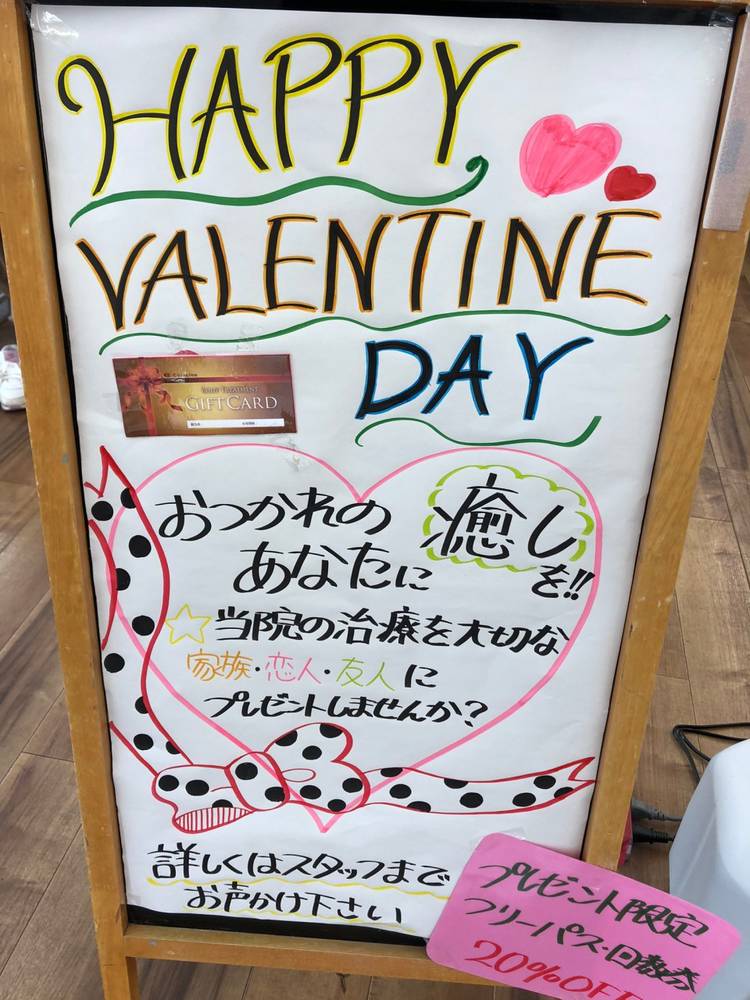 HAPPY
VALENTINE
DAY
BODY TREATMENT
GIFT CARD
おつかれの
あなたに
癒し
を!!
☆当院の治療を大切な
家族・恋人・友人に
プレゼントしませんか?
詳しくはスタッフまで
お声かけ下さい
プレゼント限定
フリーパス・回数券
20%OFF